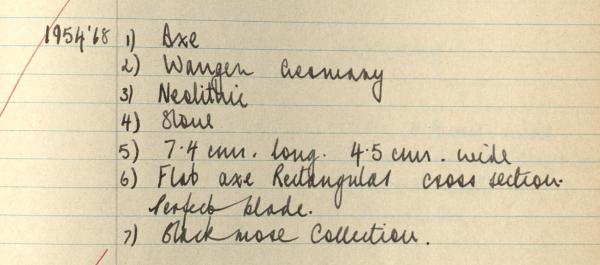 1954'68 1) Axe
2) Wangen Germany
3) Neolithic
4) Stone
5) 7.4 cms. long. 4.5 cms. wide
6) Flat axe Rectangular cross section.
Perfect blade.
7) Blackmore Collection.